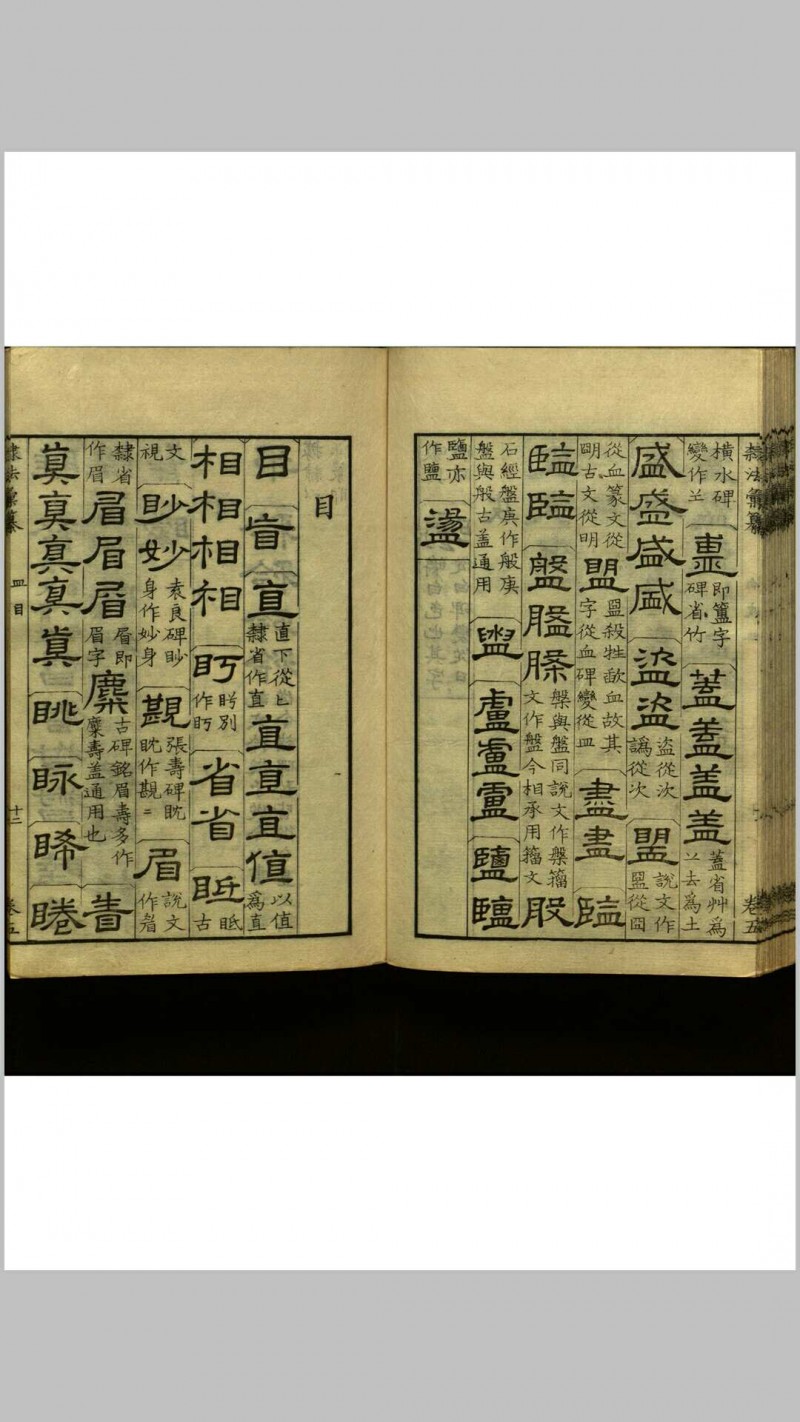 橫水碑
變作䒑
即簠字
碑省竹
蓋蓋盖盖
蓋省艸為
䒑去為土
盛盛盛盛
盜盜
盜從㳄
譌從次
盟
說文作
盟從囧
從血篆文從
朙古文從明
盟
盟殺牲歃血故其
字從血碑變從皿
盡盡
監
監監
盤
槃與盤同說文作槃籀
文作盤今相承用籀文
石經盤庚作般庚
盤與般古蓋通用
盥
盧盧盧
鹽鹽
鹽亦
作鹽
盪
目
目
盲
直
直下從乚
隸省作直
直直直值
以值
為直
相相相相
盱
盱別
作盱
省省
眂
眂
古
文
視
眇妙
袁良碑眇
身作妙身
覲
張壽碑眈
眈作覲〻
眉
說文
作睂
隸省
作眉
眉眉眉
眉即
眉字
麋
古碑銘眉壽多作
麋壽蓋通用也
眚
真真真真真
眺
眿
睎
睠
隸法彙纂
皿目
十二
卷五
隸法彙纂
卷五